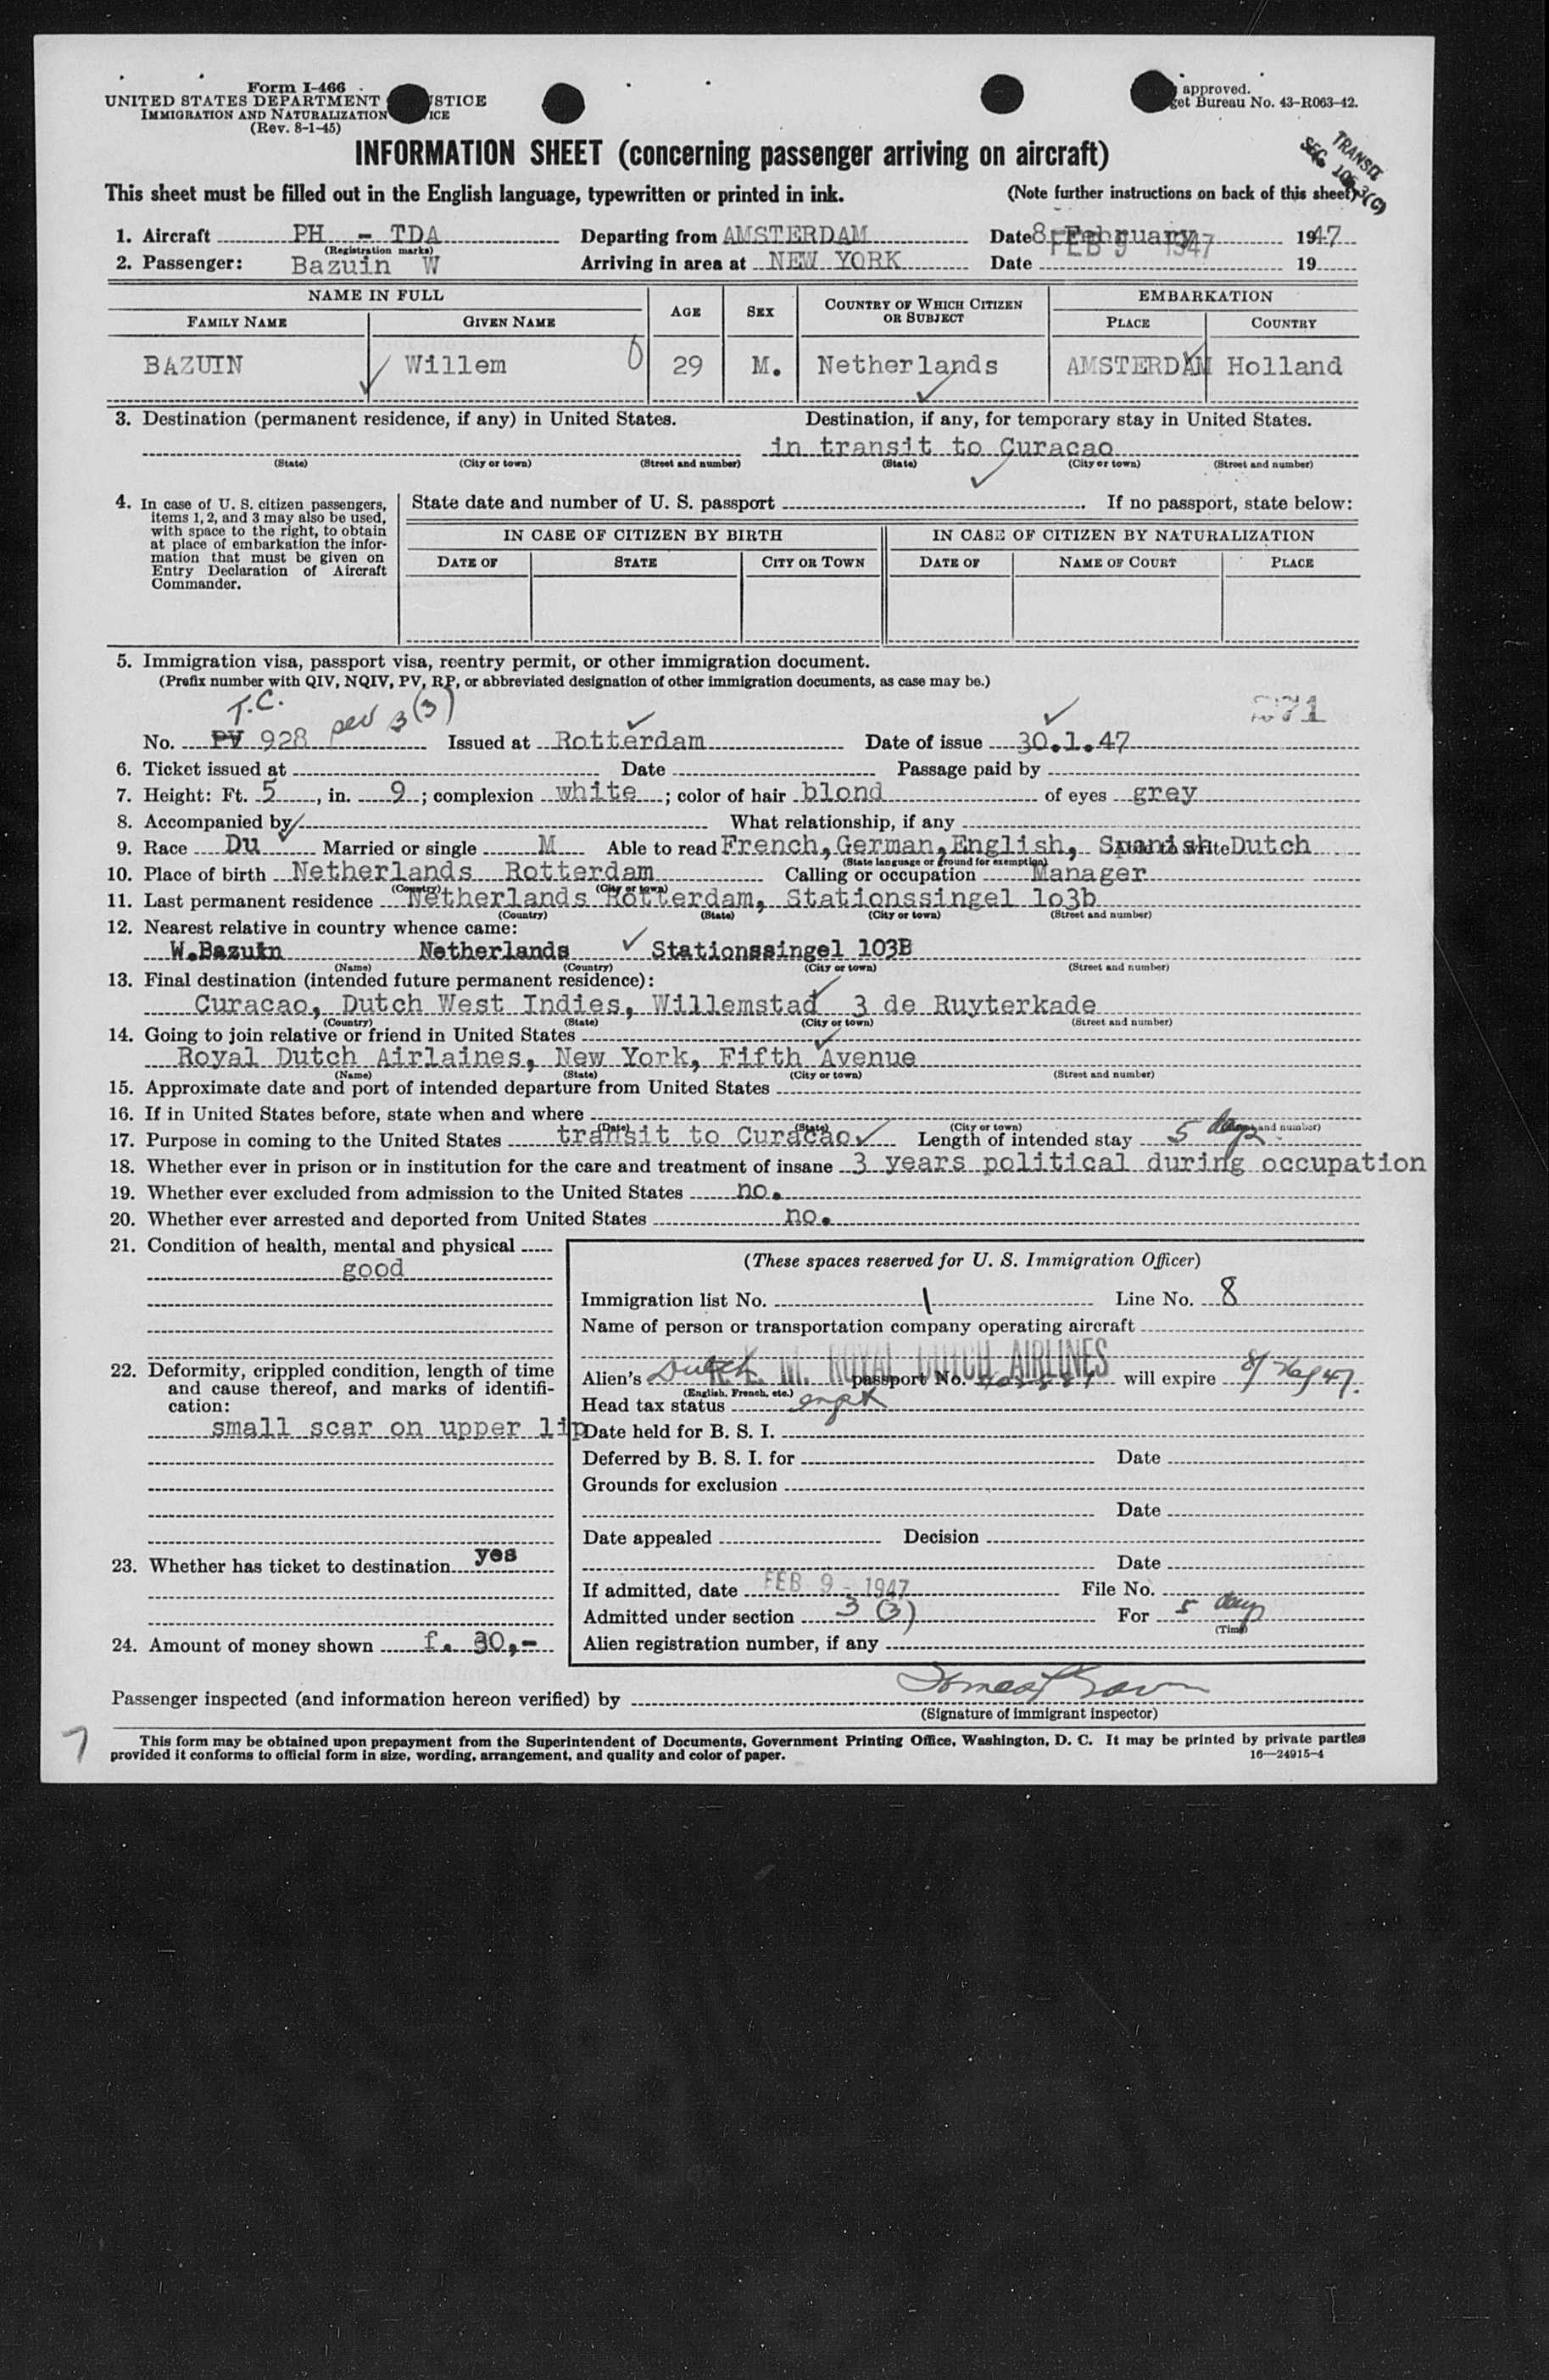 Form I-466
UNITED STATES DEPARTMENT STICE
IMMIGRATION AND NATURALIZATION ICE
(Rev. 8-1-45)
approved.
get Bureau No. 43-R063-42.
TRANSIT
SEC. 3(C)
INFORMATION SHEET (concerning passenger arriving on aircraft)
This sheet must be filled out in the English language, typewritten or printed in ink. (Note further instructions on back of this sheet)
1. Aircraft PH - TDA Departing from AMSTERDAM Date 8 February 1947
(Registration marks) FEB 9 1947
2. Passenger: Bazuin W Arriving in area at NEW YORK Date 19
NAME IN FULL AGE SEX COUNTRY OF WHICH CITIZEN OR SUBJECT EMBARKATION
FAMILY NAME GIVEN NAME PLACE COUNTRY
BAZUIN Willem 29 M. Netherlands AMSTERDAM Holland
3. Destination (permanent residence, if any) in United States. Destination, if any, for temporary stay in United States.
in transit to Curacao
(State) (City or town) (Street and number) (State) (City or town) (Street and number)
4. In case of U. S. citizen passengers, items 1, 2, and 3 may also be used, with space to the right, to obtain at place of embarkation the information that must be given on Entry Declaration of Aircraft Commander.
State date and number of U. S. passport . If no passport, state below:
IN CASE OF CITIZEN BY BIRTH IN CASE OF CITIZEN BY NATURALIZATION
DATE OF STATE CITY OR TOWN DATE OF NAME OF COURT PLACE
5. Immigration visa, passport visa, reentry permit, or other immigration document.
(Prefix number with QIV, NQIV, PV, RP, or abbreviated designation of other immigration documents, as case may be.)
T.C. 3(3) 71
No. PV 928 Issued at Rotterdam Date of issue 30.1.47
6. Ticket issued at Date Passage paid by
7. Height: Ft. 5, in. 9; complexion white; color of hair blond of eyes grey
8. Accompanied by What relationship, if any
9. Race Du Married or single M Able to read French, German, English, Spanish Dutch
(State language or ground for exemption)
10. Place of birth Netherlands Rotterdam Calling or occupation Manager
(Country) (City or town)
11. Last permanent residence Netherlands Rotterdam, Stationssingel 1o3b
(Country) (State) (City or town) (Street and number)
12. Nearest relative in country whence came:
W.Bazuin Netherlands Stationssingel 103B
(Name) (Country) (City or town) (Street and number)
13. Final destination (intended future permanent residence):
Curacao, Dutch West Indies, Willemstad 3 de Ruyterkade
(Country) (State) (City or town) (Street and number)
14. Going to join relative or friend in United States
Royal Dutch Airlaines, New York, Fifth Avenue
(Name) (State) (City or town) (Street and number)
15. Approximate date and port of intended departure from United States
16. If in United States before, state when and where
(Date) (State) (City or town) and number)
17. Purpose in coming to the United States transit to Curacao Length of intended stay 5 days
18. Whether ever in prison or in institution for the care and treatment of insane 3 years political during occupation
19. Whether ever excluded from admission to the United States no.
20. Whether ever arrested and deported from United States no.
21. Condition of health, mental and physical
good
22. Deformity, crippled condition, length of time and cause thereof, and marks of identification:
small scar on upper lip
23. Whether has ticket to destination yes
24. Amount of money shown f. 30,-
(These spaces reserved for U. S. Immigration Officer)
Immigration list No. 1 Line No. 8
Name of person or transportation company operating aircraft
K. L. M. ROYAL DUTCH AIRLINES
Alien's Dutch passport No. will expire
(English, French, etc.)
Head tax status
Date held for B. S. I.
Deferred by B. S. I. for Date
Grounds for exclusion
Date
Date appealed Decision
Date
If admitted, date FEB 9 - 1947 File No.
Admitted under section 3 (3) For 5 days
(Time)
Alien registration number, if any
Passenger inspected (and information hereon verified) by
(Signature of immigrant inspector)
7
This form may be obtained upon prepayment from the Superintendent of Documents, Government Printing Office, Washington, D. C. It may be printed by private parties
provided it conforms to official form in size, wording, arrangement, and quality and color of paper. 16—24915-4